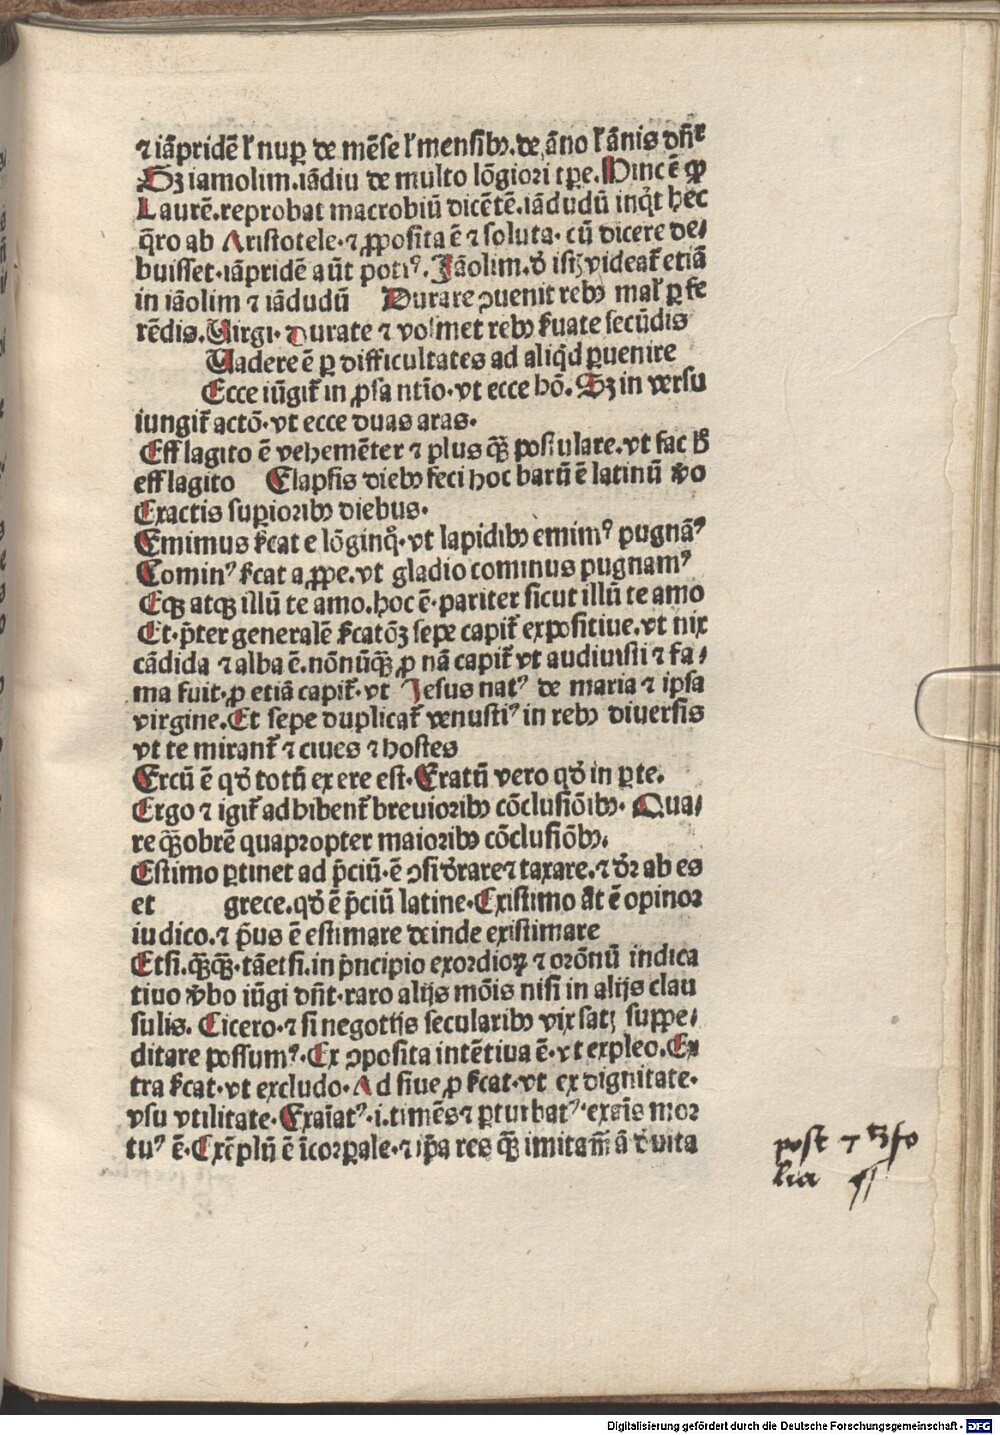 ⁊ iāpridē l' nuꝑ de mēse l' mensibꝫ. de āno l' ānis dr̄r
Sꝫ iamolim. iādiu de multo lōgiori tꝑe. Hinc ē ꝙ
Laurē. reprobat macrobiū dicētē. iādudū inq̇t hec
q̄ro ab Aristotele. ⁊ ꝓposita ē ⁊ soluta. cū dicere de⸗
buisset. iāpridē aūt potiꝰ. Iāolim. ð istꝫ videat̄ etiā
in iāolim ⁊ iādudū Durare ꝯuenit rebꝫ mal' ꝑ fe
rēdis. Uirgi. Durate ⁊ vosmet rebꝫ ẜuate secūdis
Uadere ē ꝑ difficultates ad aliq̇d ꝑuenire
Ecce iūgit̄ in ꝓsa ntīo. vt ecce hō. Sꝫ in versu
iungit̄ actō. vt ecce duas aras.
Efflagito ē vehemēter ⁊ plus q̄ꝫ postulare. vt fac hͦ
efflagito Elapsis diebꝫ feci hoc barū ē latinū v̊o
Exactis suꝑioribꝫ diebus.
Emimus ẜcat e lōginq̊. vt lapidibꝫ emimꝰ pugnāꝰ
Cominꝰ ẜcat a ꝓpe. vt gladio cominus pugnamꝰ
Eqꝫ atqꝫ illū te amo. hoc ē. pariter sicut illū te amo
Et. p̄ter generalē ẜcatōꝫ sepe capit̄ expositiue. vt nix
cādida ⁊ alba ē. nōnūq̄ꝫ ꝓ nā capit̄ vt audiuisti ⁊ fa⸗
ma fuit. ꝓ etiā capit̄. vt Iesus natꝰ de maria ⁊ ipsa
virgine. Et sepe duplicat̄ venustiꝰ in rebꝫ diuersis
vt te mirant̄ ⁊ ciues ⁊ hostes
Ercū ē qð totū ex ere est. Eratū vero qð in ꝑte.
Ergo ⁊ igit̄ adhibent̄ breuioribꝫ cōclusiōibꝫ. Qua⸗
re q̄ꝫobrē quapropter maioribꝫ cōclusiōbꝫ.
Estimo ꝑtinet ad p̄ciū. ē ꝯsiðrare ⁊ taxare. ⁊ ðꝛ ab es
et grece. qð ē p̄ciū latine. Existimo āt ē opinor
iudico. ⁊ pͥus ē estimare deinde existimare
Etsi. q̄ꝫq̄ꝫ. tāetsi. in pͥncipio exordioꝝ ⁊ orōnū indica
tiuo v̊bo iūgi dn̄t. raro alijs mōis nisi in alijs clau
sulis. Cicero. ⁊ si negotijs secularibꝫ vix satꝭ suppe⸗
ditare possumꝰ. Ex ꝯposita intētiua ē. vt expleo. Ex
tra ẜcat. vt excludo. Ad siue ꝓ ẜcat. vt ex dignitate.
vsu vtilitate. Exaīatꝰ. i. timēs ⁊ ꝑturbatꝰ. exaīs mor
tuꝰ ē. Exēplū ē īcorꝑale. ⁊ ip̄a res q̄ꝫ imitam̄ a ð vita
post ⁊ folia